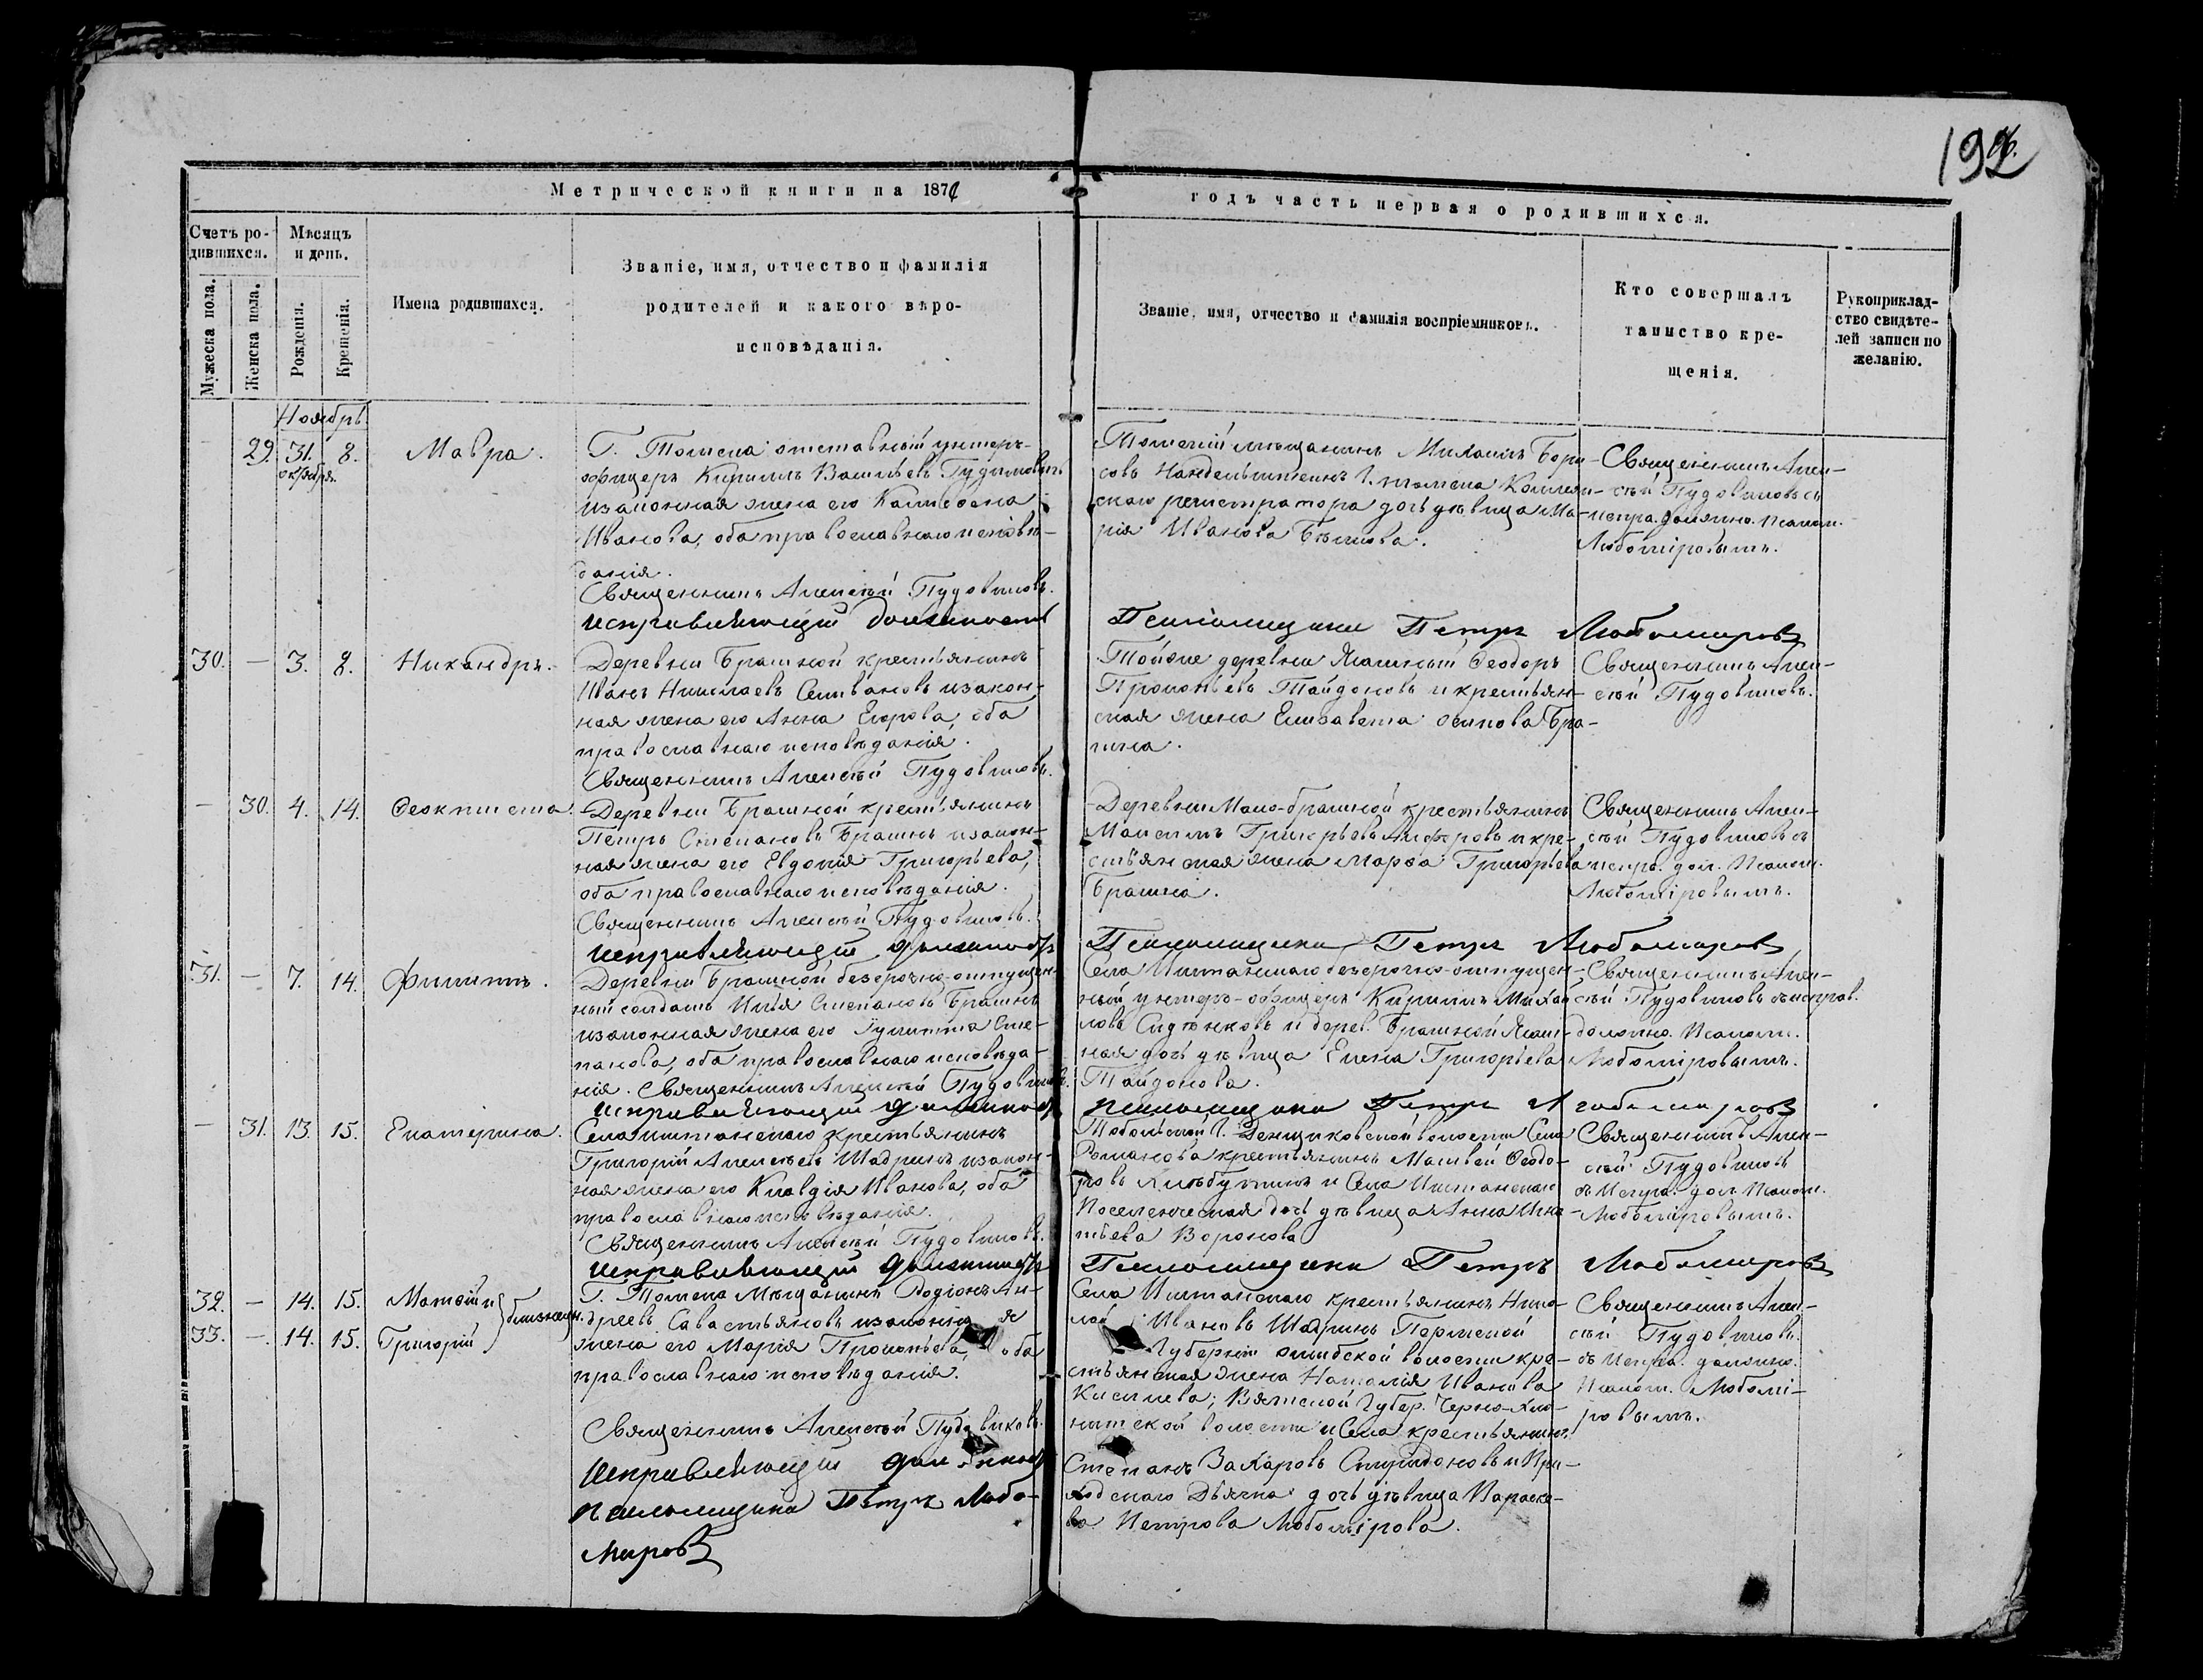 192
Метрической книги на 187
годъ часть первая о родившихся.
Счетъ ро-
дившихся.
Мѣсяцъ
и день.
Мужеска пола.
Женска пола.
Рожденія.
Крещенія.
Имена родившихся.
Званіе, имя, отчество и фамилія
родителей и какого вѣро-
исповѣданія.
Званіе, имя, отчество и фамилія воспріемниковъ.
Кто совершалъ
таинство кре-
щенія.
Рукоприклад-
ство свидѣте-
лей записи по
желанію.
Ноябрь
29. 31. 8. Мавра.
октября.
Г. Томска отставный унтеръ-
офицеръ Кириллъ Васильевъ
и законная жена его
Иванова, оба православнаго исповѣ-
данія.
Священникъ Алексѣй Пудовиковъ.
Исправляющій должность
Томскій мѣщанинъ Михаилъ Бори-
совъ г. Томска Коллеж-
скаго регистратора дочь дѣвица Ма-
рія Иванова
Священникъ Алек-
сѣй Пудовиковъ съ
испра. должно. Псалом.
Любоміровымъ.
Псаломщика Петръ Любомировъ
30. — 3. 8. Никандръ.
Деревни Брагиной крестьянинъ
Иванъ Николаевъ Селивановъ и закон-
ная жена его Анна Егорова, оба
православнаго исповѣданія.
Священникъ Алексѣй Пудовиковъ.
Тойже деревни Ясашный Ѳеодоръ
Прокопьевъ Тайдоновъ и крестьян-
ская жена Елизавета Осипова Бра-
гина.
Священникъ Алек-
сѣй Пудовиковъ.
— 30. 4. 14. Ѳеоктиста.
Деревни Брагиной крестьянинъ
Петръ Степановъ Брагинъ и закон-
ная жена его Евдокія Григорьева,
оба православнаго исповѣданія.
Священникъ Алексѣй Пудовиковъ.
Исправляющій должность
Деревни Мало-брагиной крестьянинъ
Максимъ Григорьевъ и кре-
стьянская жена Марѳа Григорьева
Брагина.
Священникъ Алек-
сѣй Пудовиковъ съ
испра. дол. Псалом.
Любоміровымъ.
Псаломщика Петръ Любомировъ
31. — 7. 14. Филиппъ.
Деревни Брагиной безсрочно-отпущен-
ный солдатъ Илья Степановъ Брагинъ
и законная жена его Іулитта Сте-
панова, оба православнаго исповѣда-
нія. Священникъ Алексѣй Пудовиковъ.
Исправляющій должность
Села Иштанскаго безсрочно-отпущен-
ный унтеръ-офицеръ Кириллъ Михай
ловъ Сидѣнковъ и дерев. Брагиной Ясаш-
ная дочь дѣвица Елена Григорьева
Тайдонова.
Священникъ Алек-
сѣй Пудовиковъ съ исправ.
должно. Псалом.
Любоміровымъ.
псаломщика Петръ Любомировъ
— 31. 13. 15. Екатерина.
Села Иштанскаго крестьянинъ
Григорій Алексѣевъ Шадринъ и закон-
ная жена его Клавдія Иванова, оба
православнаго исповѣданія.
Священникъ Алексѣй Пудовиковъ.
Исправляющій должность
Тобольской Г. Денщиковской волости Села
Романова крестьянинъ Матвей Ѳеодо-
ровъ и Села Иштанскаго
Поселенческая дочь дѣвица Анна Игна-
тьева Воронова
Священникъ Алек-
сѣй Пудовиковъ
съ Испра. дол. Псалом.
Любоміровымъ.
Псаломщика Петръ Любомировъ
32. — 14. 15. Матѳій и
33. — 14. 15. Григорій
близнецы.
Г. Томска Мѣщанинъ Родіонъ Ан-
дреевъ Савастьяновъ и законная
жена его Марія Прокопьева, оба
православнаго исповѣданія.
Священникъ Алексѣй Пудовиковъ.
Исправляющій должность
псаломщика Петръ Любо-
мировъ
Села Иштанскаго крестьянинъ Нико-
лай Ивановъ Шадринъ Пермской
Губерніи волости кре-
стьянская жена Наталія Иванова
Киселева; Вятской Губер.
волости и Села крестьянинъ
Степанъ Захаровъ Спиридоновъ и При-
ходскаго Дьячка дочь дѣвица Параске-
ва Петрова Любомірова.
Священникъ Алек-
сѣй Пудовиковъ
съ Испра. должно.
Псалом. Любомі-
ровымъ.